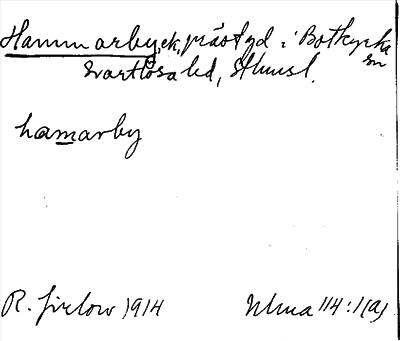 Hammarby, ek, prästgd i Botkyrka sn
Svartlösa hd, Sthmsl.
hamarby
R. Jirlow 1914
Ulma 114:1(a)